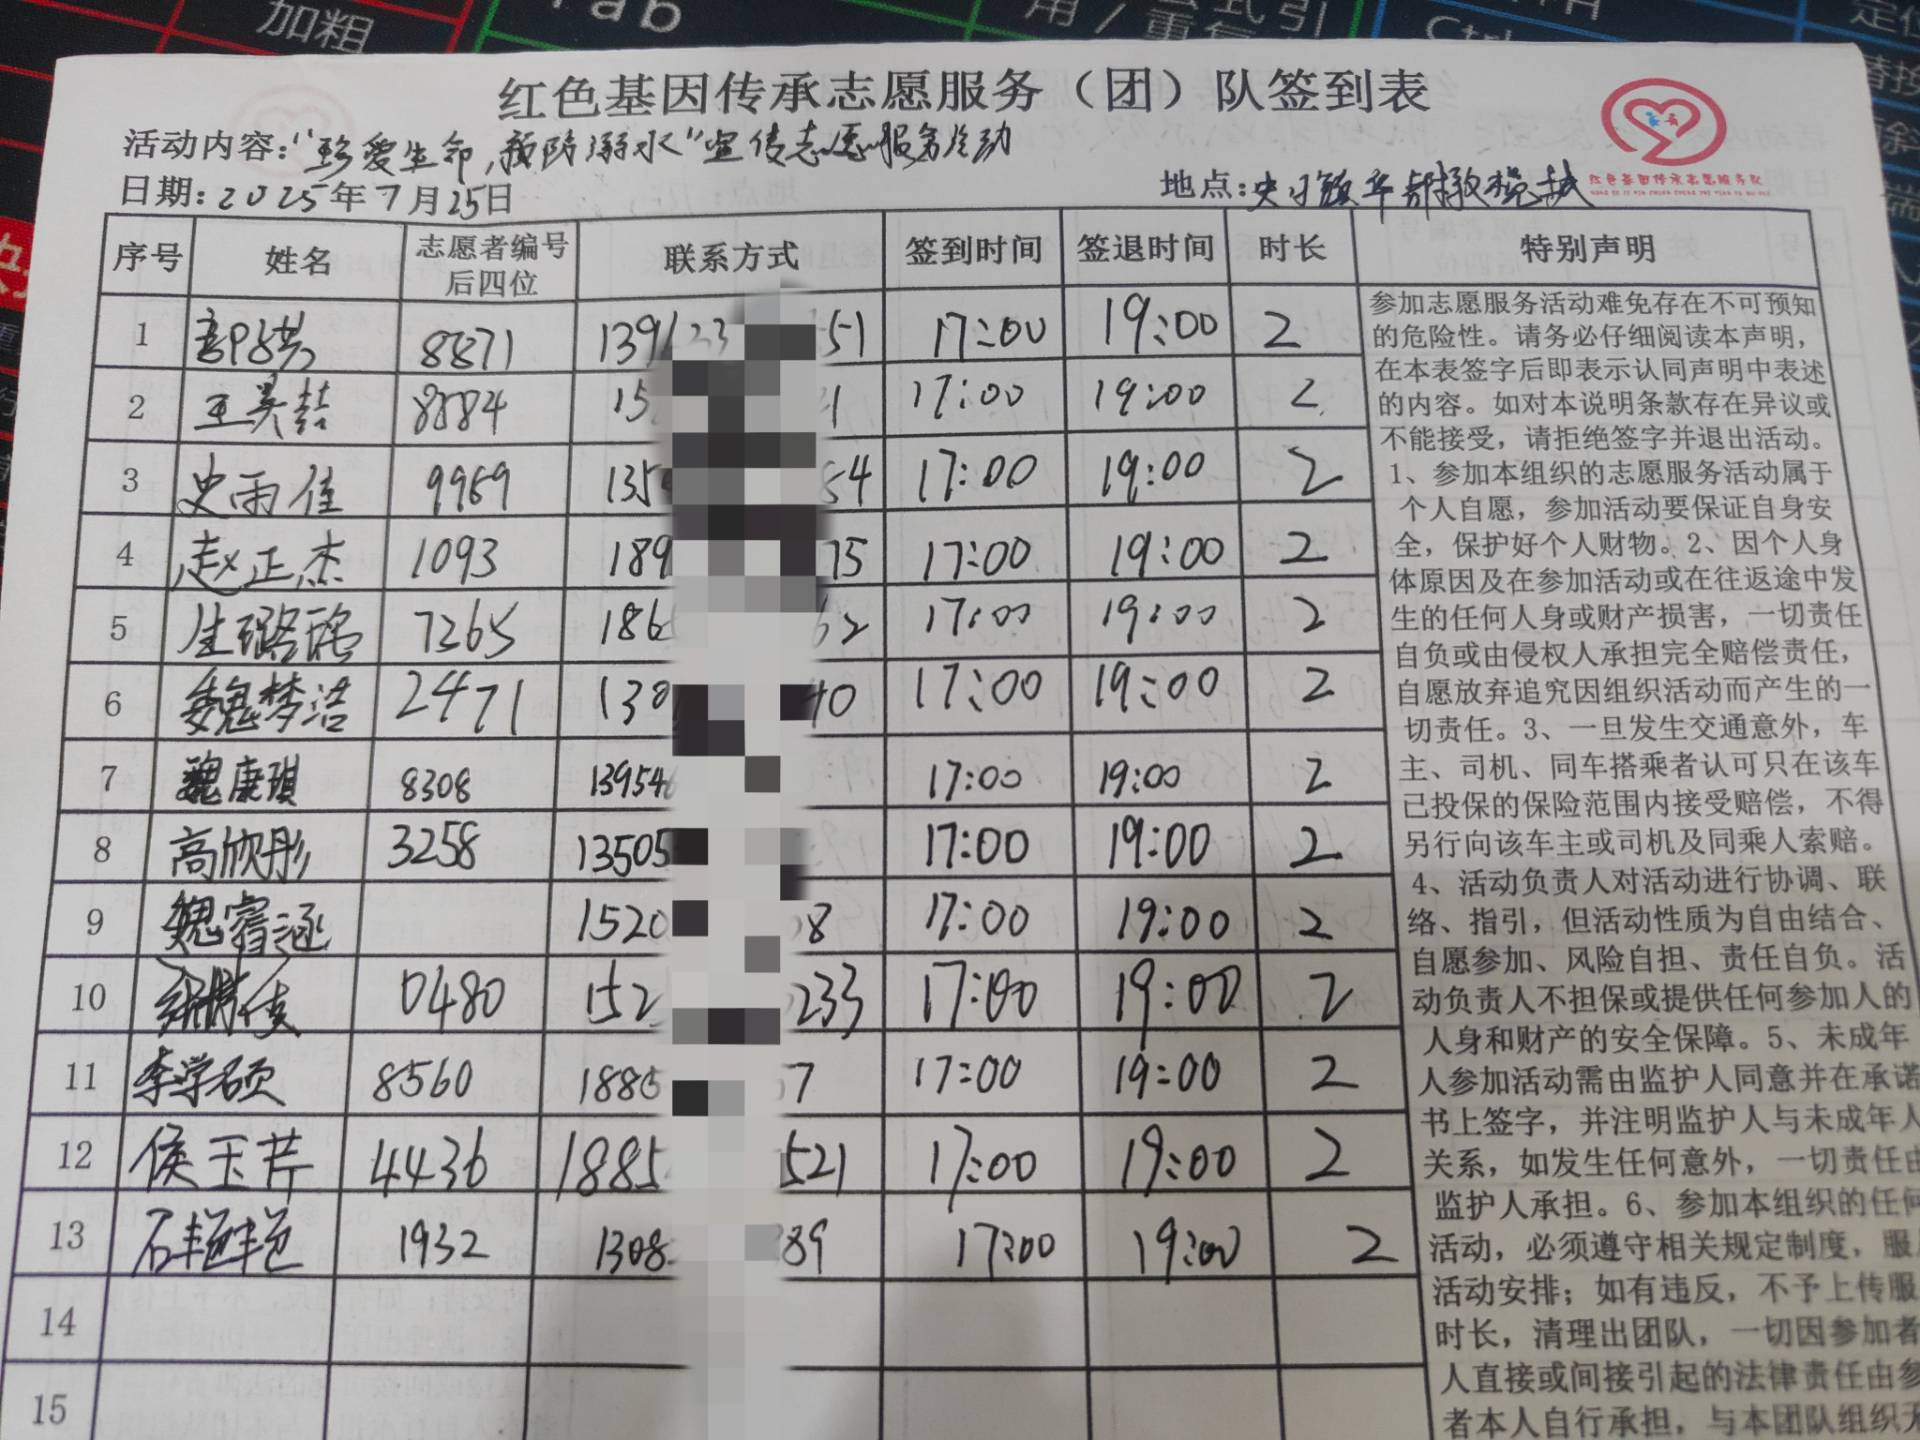 加粗
Tab
Ctrl
红色基因传承志愿服务（团）队签到表
活动内容："珍爱生命,预防溺水"宣传志愿服务活动
日期：2025年7月25日 地点：
红色基因传承志愿服务队
序号 姓名 志愿者编号后四位 联系方式 签到时间 签退时间 时长 特别声明
1 8871 139 51 17:00 19:00 2
2 8884 15 1 17:00 19:00 2
3 史雨佳 9969 135 54 17:00 19:00 2
4 赵正杰 1093 189 75 17:00 19:00 2
5 7265 186 62 17:00 19:00 2
6 魏梦洁 2471 138 40 17:00 19:00 2
7 魏康琪 8308 13954 17:00 19:00 2
8 高欣彤 3258 13505 17:00 19:00 2
9 魏睿涵 1520 08 17:00 19:00 2
10 0480 152 233 17:00 19:00 2
11 李学硕 8560 188 7 17:00 19:00 2
12 侯玉芹 4436 1885 521 17:00 19:00 2
13 石艳艳 1932 1308 89 17:00 19:00 2
14
15
参加志愿服务活动难免存在不可预知
的危险性。请务必仔细阅读本声明，
在本表签字后即表示认同声明中表述
的内容。如对本说明条款存在异议或
不能接受，请拒绝签字并退出活动。
1、参加本组织的志愿服务活动属于
个人自愿，参加活动要保证自身安
全，保护好个人财物。2、因个人身
体原因及在参加活动或在往返途中发
生的任何人身或财产损害，一切责任
自负或由侵权人承担完全赔偿责任，
自愿放弃追究因组织活动而产生的一
切责任。3、一旦发生交通意外，车
主、司机、同车搭乘者认可只在该车
已投保的保险范围内接受赔偿，不得
另行向该车主或司机及同乘人索赔。
4、活动负责人对活动进行协调、联
络、指引，但活动性质为自由结合、
自愿参加、风险自担、责任自负。活
动负责人不担保或提供任何参加人的
人身和财产的安全保障。5、未成年
人参加活动需由监护人同意并在承诺
书上签字，并注明监护人与未成年人
关系，如发生任何意外，一切责任由
监护人承担。6、参加本组织的任何
活动，必须遵守相关规定制度，服
活动安排；如有违反，不予上传服
时长，清理出团队，一切因参加者
人直接或间接引起的法律责任由参
者本人自行承担，与本团队组织无